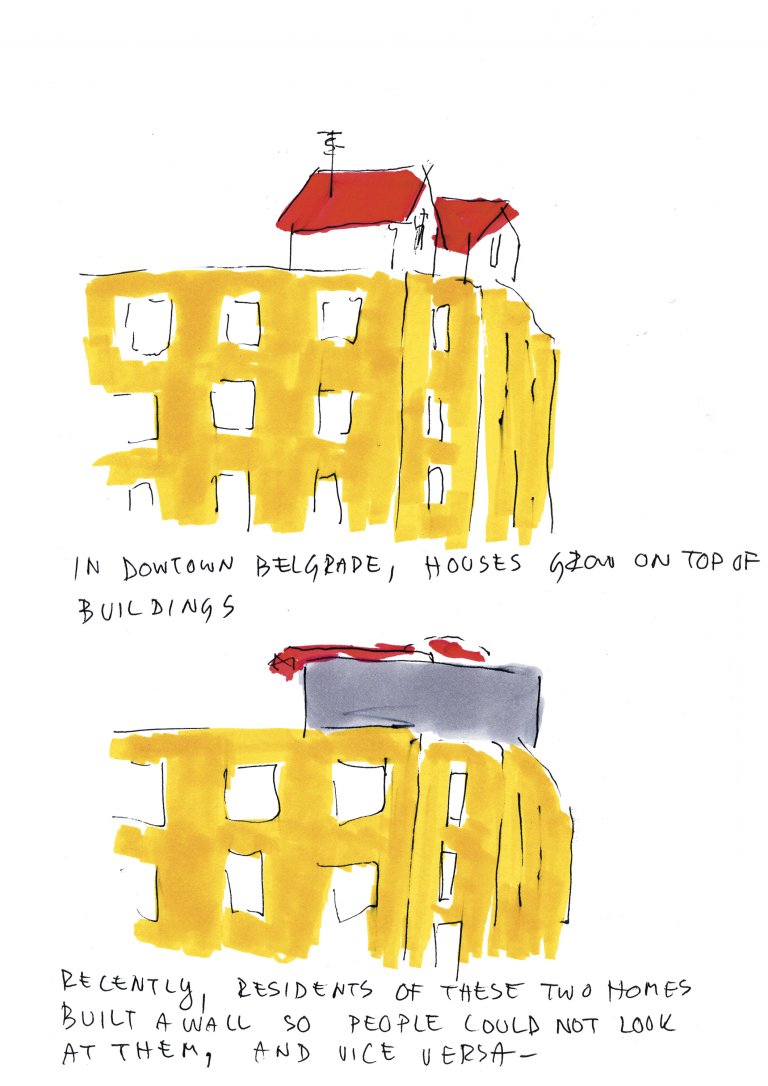 IN DOWTOWN BELGRADE, HOUSES GROW ON TOP OF
BUILDINGS
RECENTLY, RESIDENTS OF THESE TWO HOMES
BUILT A WALL SO PEOPLE COULD NOT LOOK
AT THEM, AND VICE VERSA—